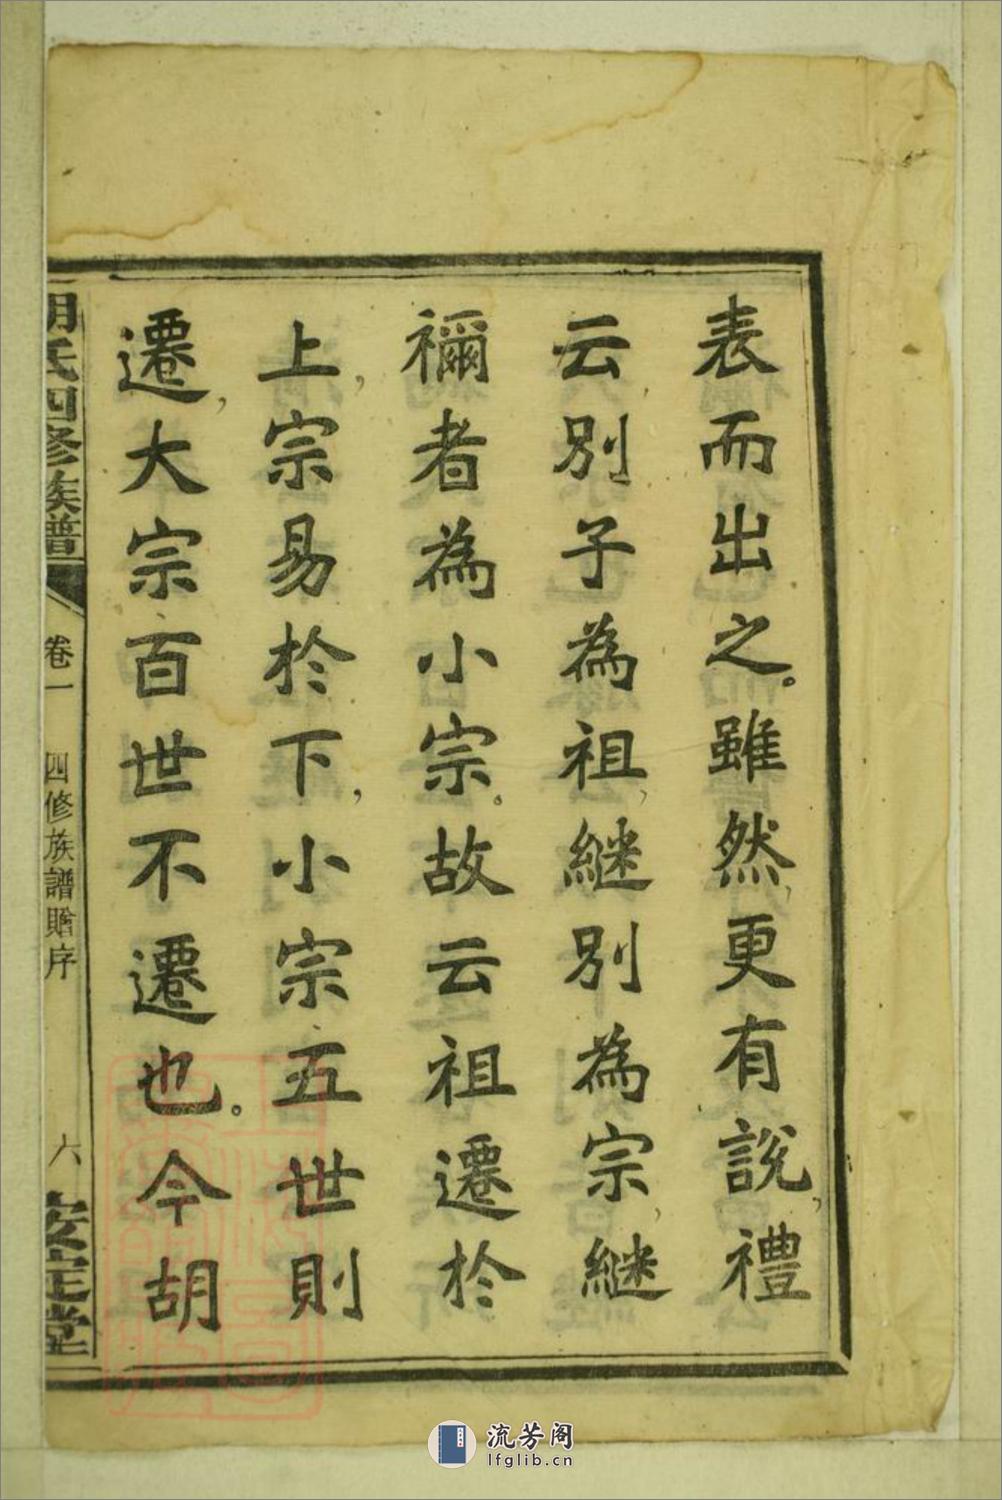 表而出之。雖然，更有說，禮
云，別子為祖，継別為宗，継
禰者為小宗。故云祖遷於
上，宗易於下，小宗五世則
遷，大宗百世不遷也。今胡
胡氏四修族譜
卷一
四修族譜贈序
六
安定堂
流芳阁
lfglib.cn